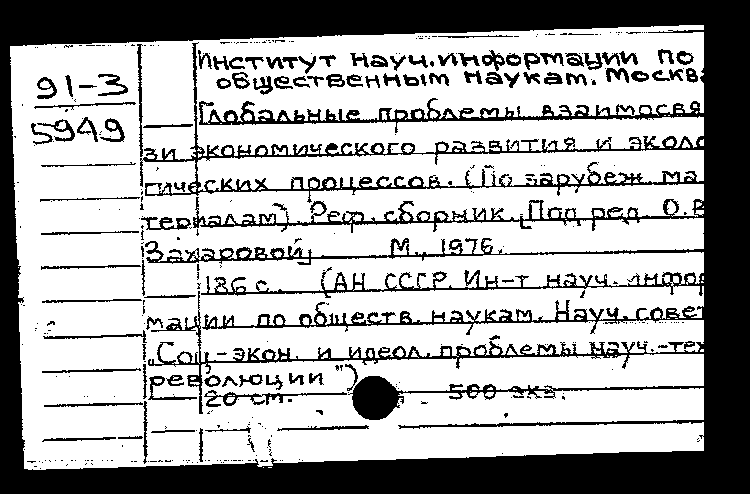 91-3
5949
Институт науч.информации по
общественным наукам. Москва
Глобальные проблемы взаимосвя
зи экономического развития и эколо
гических процессов. (По зарубеж ма
териалам). Реф. сборник. [Под ред. О.В
Захаровой] М., 1976.
186 с. (АН СССР. Ин-т науч. инфор
мации по обществ. наукам. Науч. совет
„Соц-экон. и идеол. проблемы науч.-тех
революции")
20 см. 500 экз.